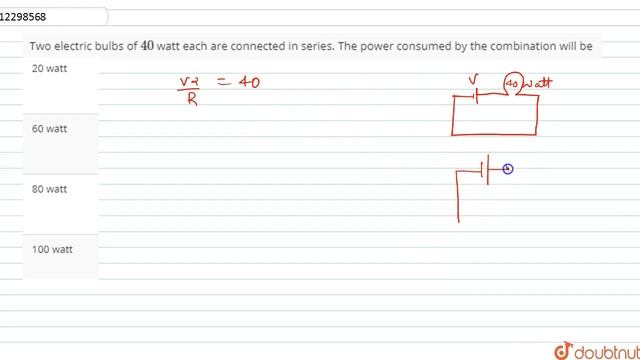 12298568
Two electric bulbs of 40 watt each are connected in series. The power consumed by the combination will be
20 watt
60 watt
80 watt
100 watt
V2/R = 40
V
40 watt
doubtnut